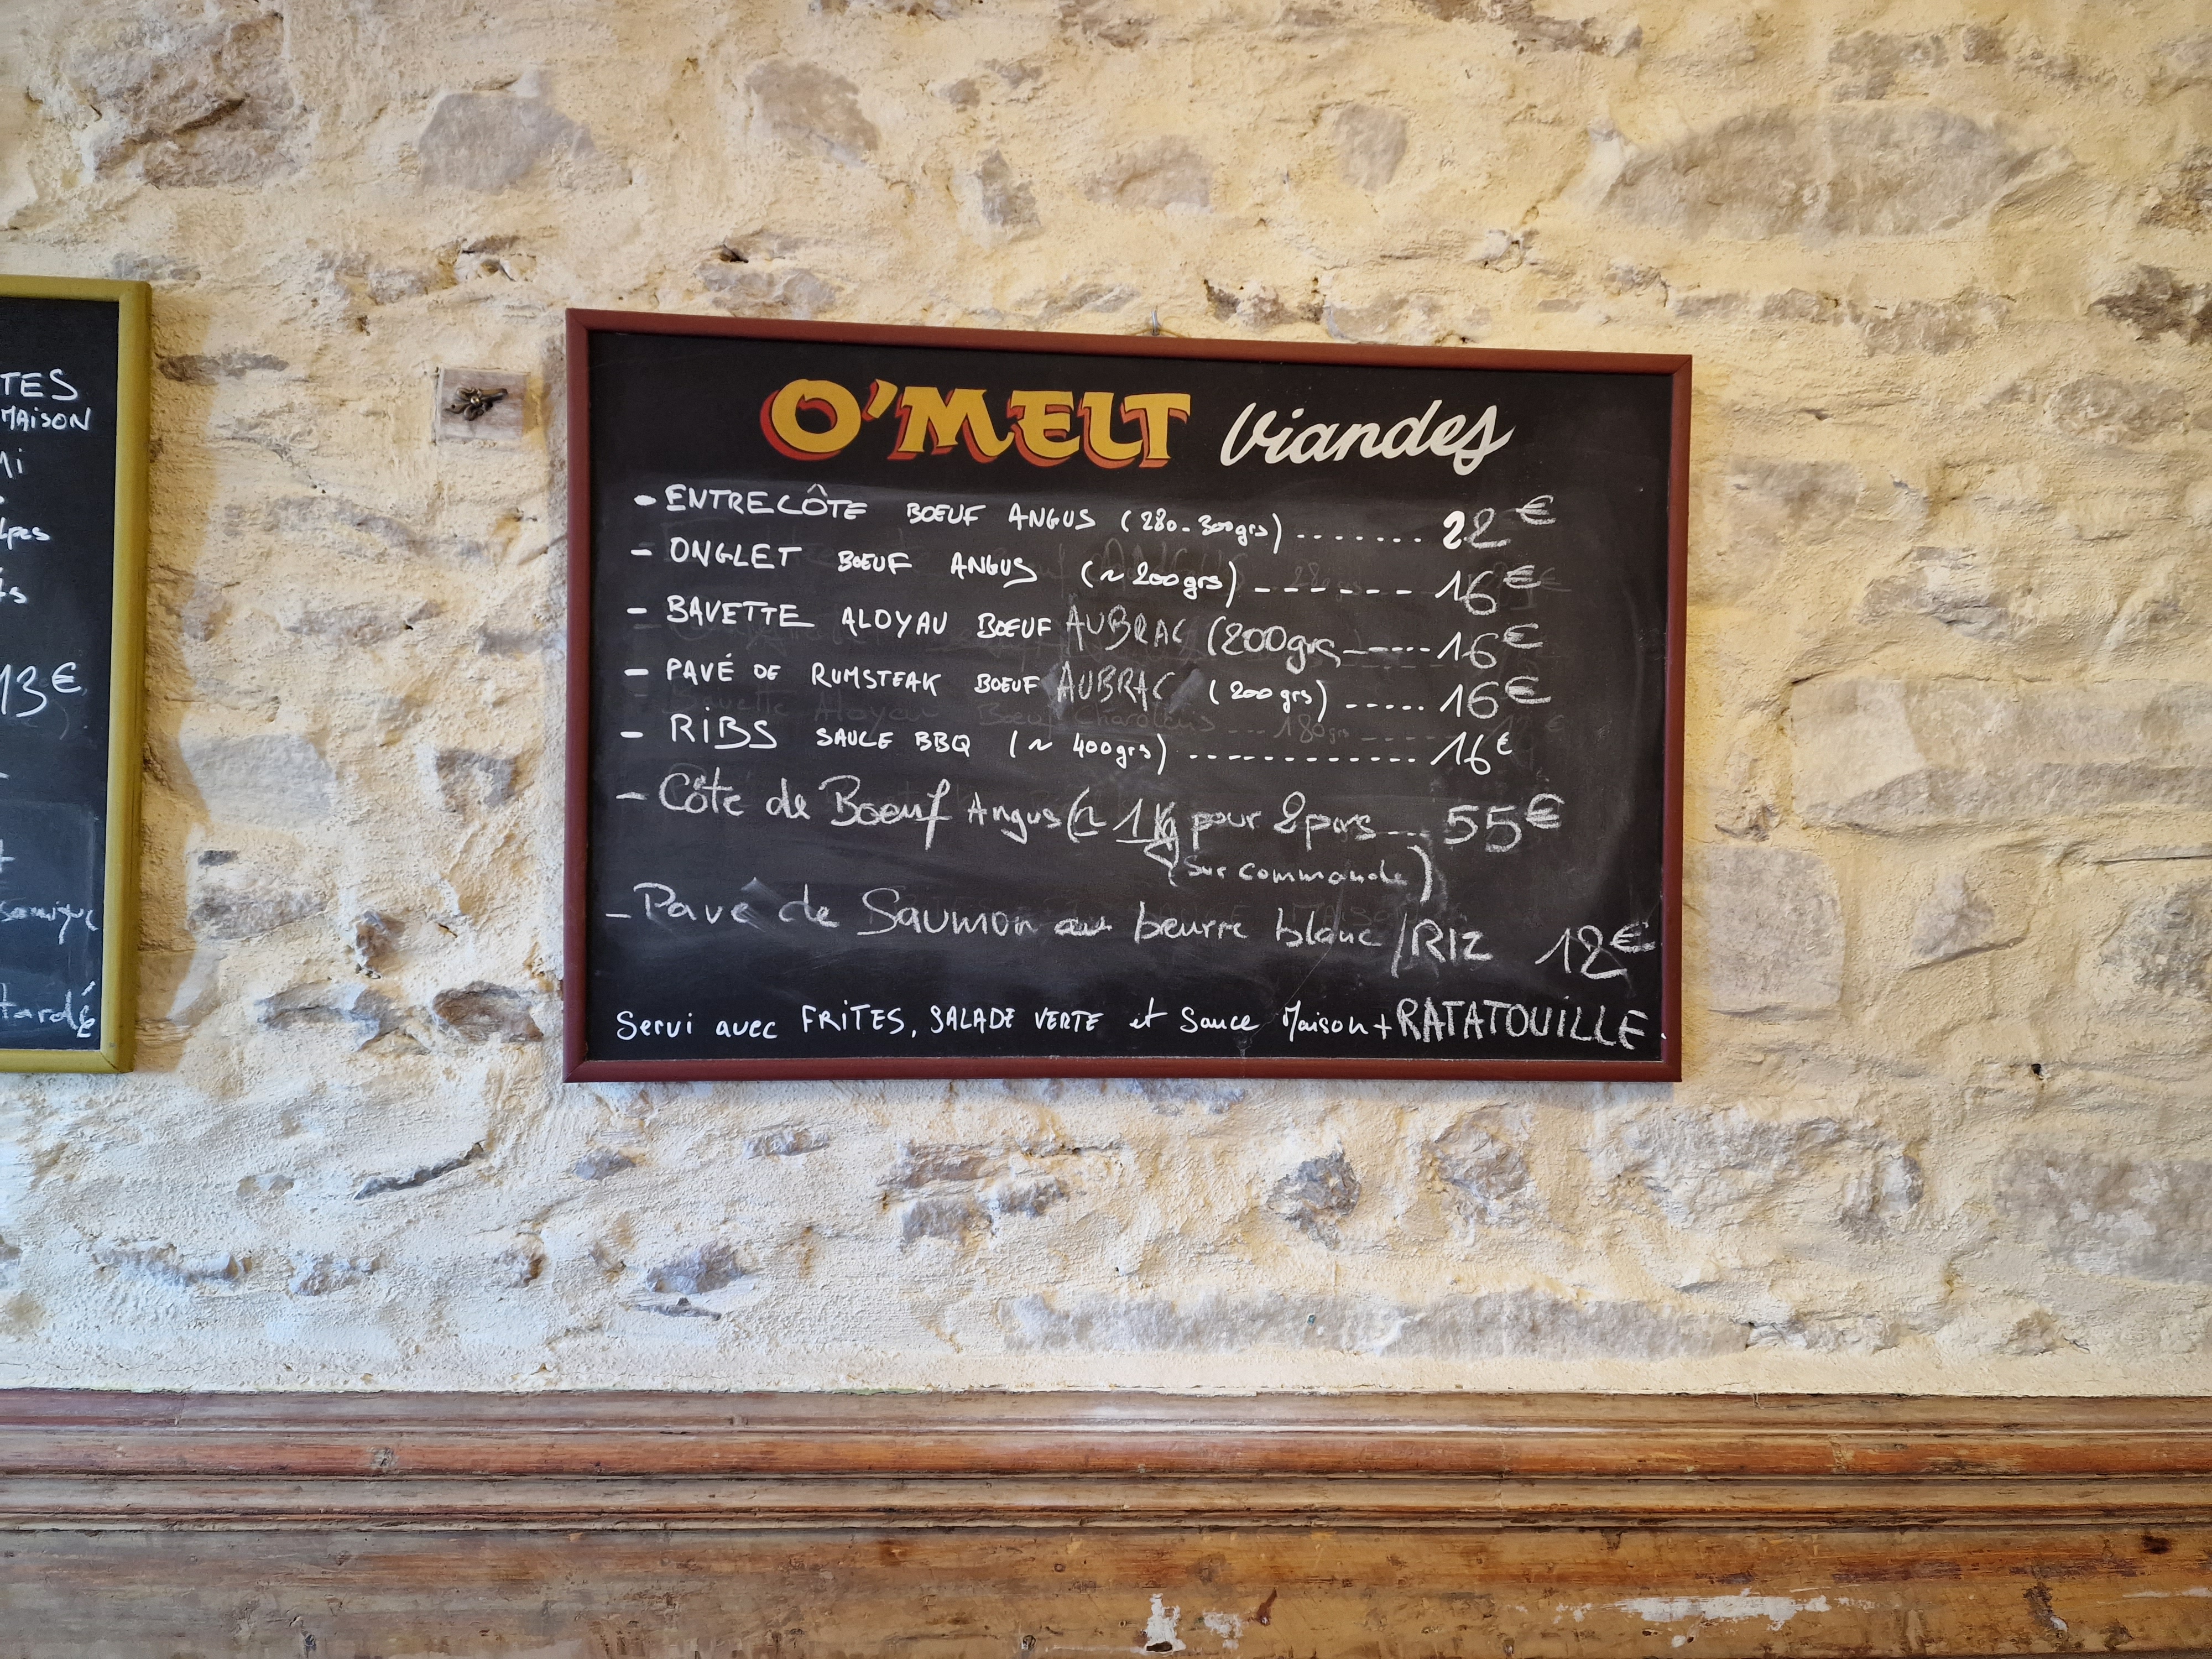 TES
MAiSON
13€
tardé
O'MELT Viandes
- ENTRECÔTE BOEUF ANGUS (280-300grs) ....... 22€
- ONGLET BOEUF ANGUS (~200grs) ------ 16€
- BAVETTE ALOYAU BOEUF AUBRAC (200grs ----- 16€
- PAVÉ DE RUMSTEAK BOEUF AUBRAC (200grs) ----- 16€
- RiBS SAUCE BBQ (~ 400grs) ------------ 16€
- Côte de Boeuf Angus (~ 1Kg pour 2pers .... 55€
(sur commande)
- Pavé de Saumon au beurre blanc / RIZ 12€
Servi avec FRiTES, SALADE VERTE et Sauce Maison + RATATOUILLE.